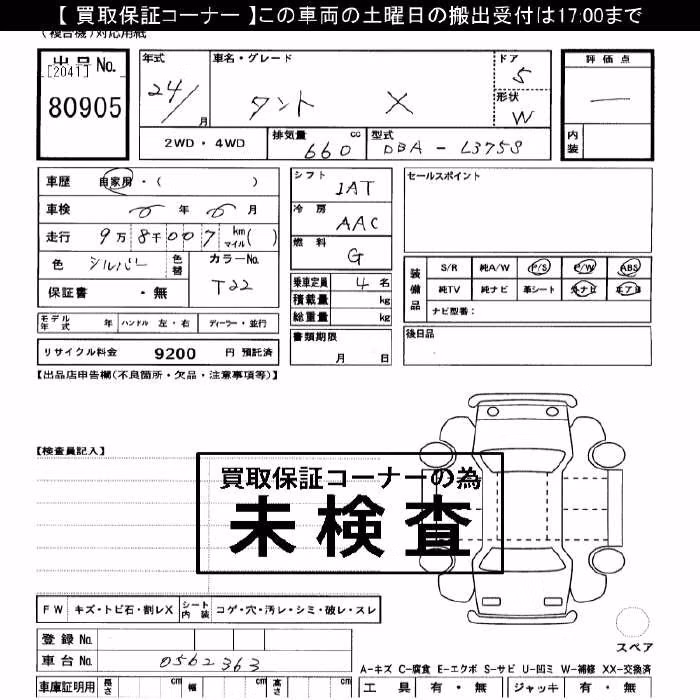 【 買取保証コーナー 】この車両の土曜日の搬出受付は17:00まで
(複合機)対応用紙
出品No.
[2041]
80905
年式
24/
月
車名・グレード
タント X
ドア
5
形状
W
評価点
―
内装
2WD・4WD
排気量
660 cc
型式
DBA - L375S
車歴 自家用・( )
車検 年 月
走行 9万8千007 km マイル( )
色 シルバー
色替
カラーNo.
T22
保証書 ・無
シフト
IAT
冷房
AAC
燃料
G
乗車定員 4 名
積載量 kg
総重量 kg
セールスポイント
装備品
S/R 純A/W P/S P/W ABS
純TV 純ナビ 革シート 外ナビ エアB
ナビ型番:
モデル年式 年 ハンドル 左・右 ディーラー・並行
リサイクル料金 9200 円 預託済
書類期限
月 日
後日品
【出品店申告欄(不良箇所・欠品・注意事項等)】
【検査員記入】
買取保証コーナーの為
未検査
FW キズ・トビ石・割レX シート内装 コゲ・穴・汚レ・シミ・破レ・スレ
登録No.
車台No. 0562363
スペア
A-キズ C-腐食 E-エクボ S-サビ U-凹ミ W-補修 XX-交換済
車庫証明用 長さ cm 幅 cm 高さ cm
工具 有・無 ジャッキ 有・無